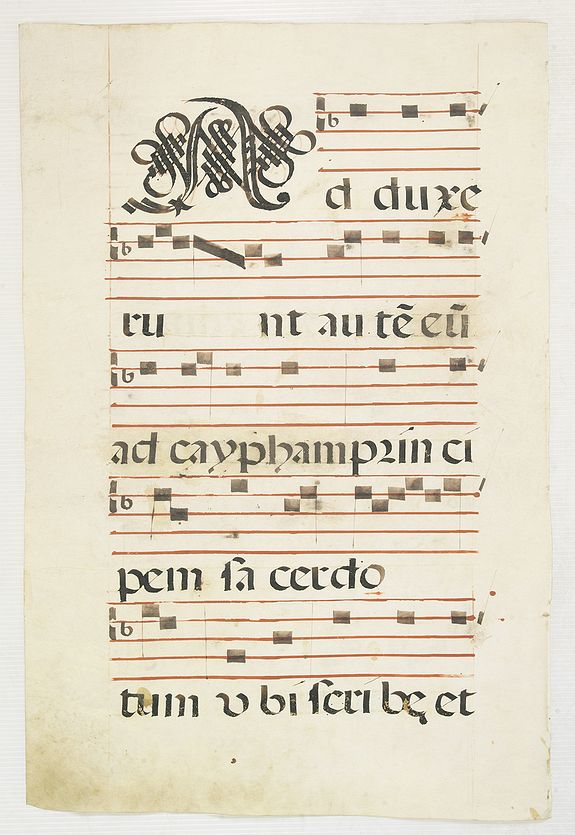 Ad duxe
ru nt autẽ eũ
ad caypham prin ci
pem sa cerdo
tum v bi scri bę et